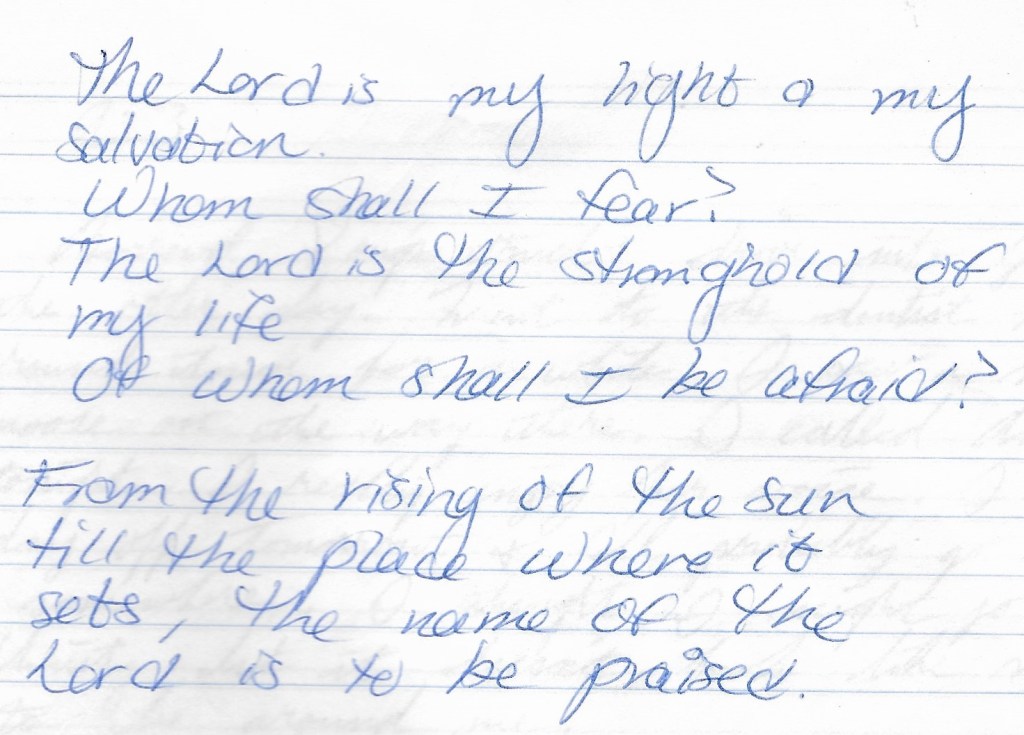 The Lord is my light a my
salvation.
Whom shall I fear?
The Lord is the stronghold of
my life
Of whom shall I be afraid?
From the rising of the sun
till the place where it
sets, the name of the
Lord is to be praised.